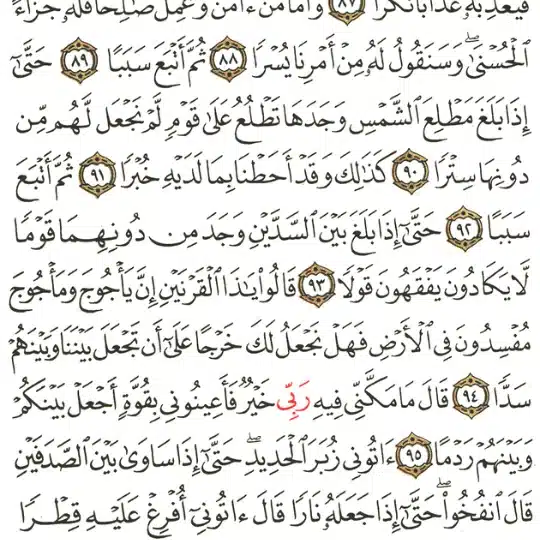 فَيُعَذِّبُهُۥ عَذَابًا نُّكْرًا ٨٧ وَأَمَّا مَنْ ءَامَنَ وَعَمِلَ صَٰلِحًا فَلَهُۥ جَزَآءً
ٱلْحُسْنَىٰۖ وَسَنَقُولُ لَهُۥ مِنْ أَمْرِنَا يُسْرًا ٨٨ ثُمَّ أَتْبَعَ سَبَبًا ٨٩ حَتَّىٰٓ
إِذَا بَلَغَ مَطْلِعَ ٱلشَّمْسِ وَجَدَهَا تَطْلُعُ عَلَىٰ قَوْمٍ لَّمْ نَجْعَل لَّهُم مِّن
دُونِهَا سِتْرًا ٩٠ كَذَٰلِكَ وَقَدْ أَحَطْنَا بِمَا لَدَيْهِ خُبْرًا ٩١ ثُمَّ أَتْبَعَ
سَبَبًا ٩٢ حَتَّىٰٓ إِذَا بَلَغَ بَيْنَ ٱلسَّدَّيْنِ وَجَدَ مِن دُونِهِمَا قَوْمًا
لَّا يَكَادُونَ يَفْقَهُونَ قَوْلًا ٩٣ قَالُوا۟ يَٰذَا ٱلْقَرْنَيْنِ إِنَّ يَأْجُوجَ وَمَأْجُوجَ
مُفْسِدُونَ فِى ٱلْأَرْضِ فَهَلْ نَجْعَلُ لَكَ خَرْجًا عَلَىٰٓ أَن تَجْعَلَ بَيْنَنَا وَبَيْنَهُمْ
سَدًّا ٩٤ قَالَ مَا مَكَّنِّى فِيهِ رَبِّى خَيْرٌ فَأَعِينُونِى بِقُوَّةٍ أَجْعَلْ بَيْنَكُمْ
وَبَيْنَهُمْ رَدْمًا ٩٥ ءَاتُونِى زُبَرَ ٱلْحَدِيدِۖ حَتَّىٰٓ إِذَا سَاوَىٰ بَيْنَ ٱلصَّدَفَيْنِ
قَالَ ٱنفُخُوا۟ۖ حَتَّىٰٓ إِذَا جَعَلَهُۥ نَارًا قَالَ ءَاتُونِىٓ أُفْرِغْ عَلَيْهِ قِطْرًا